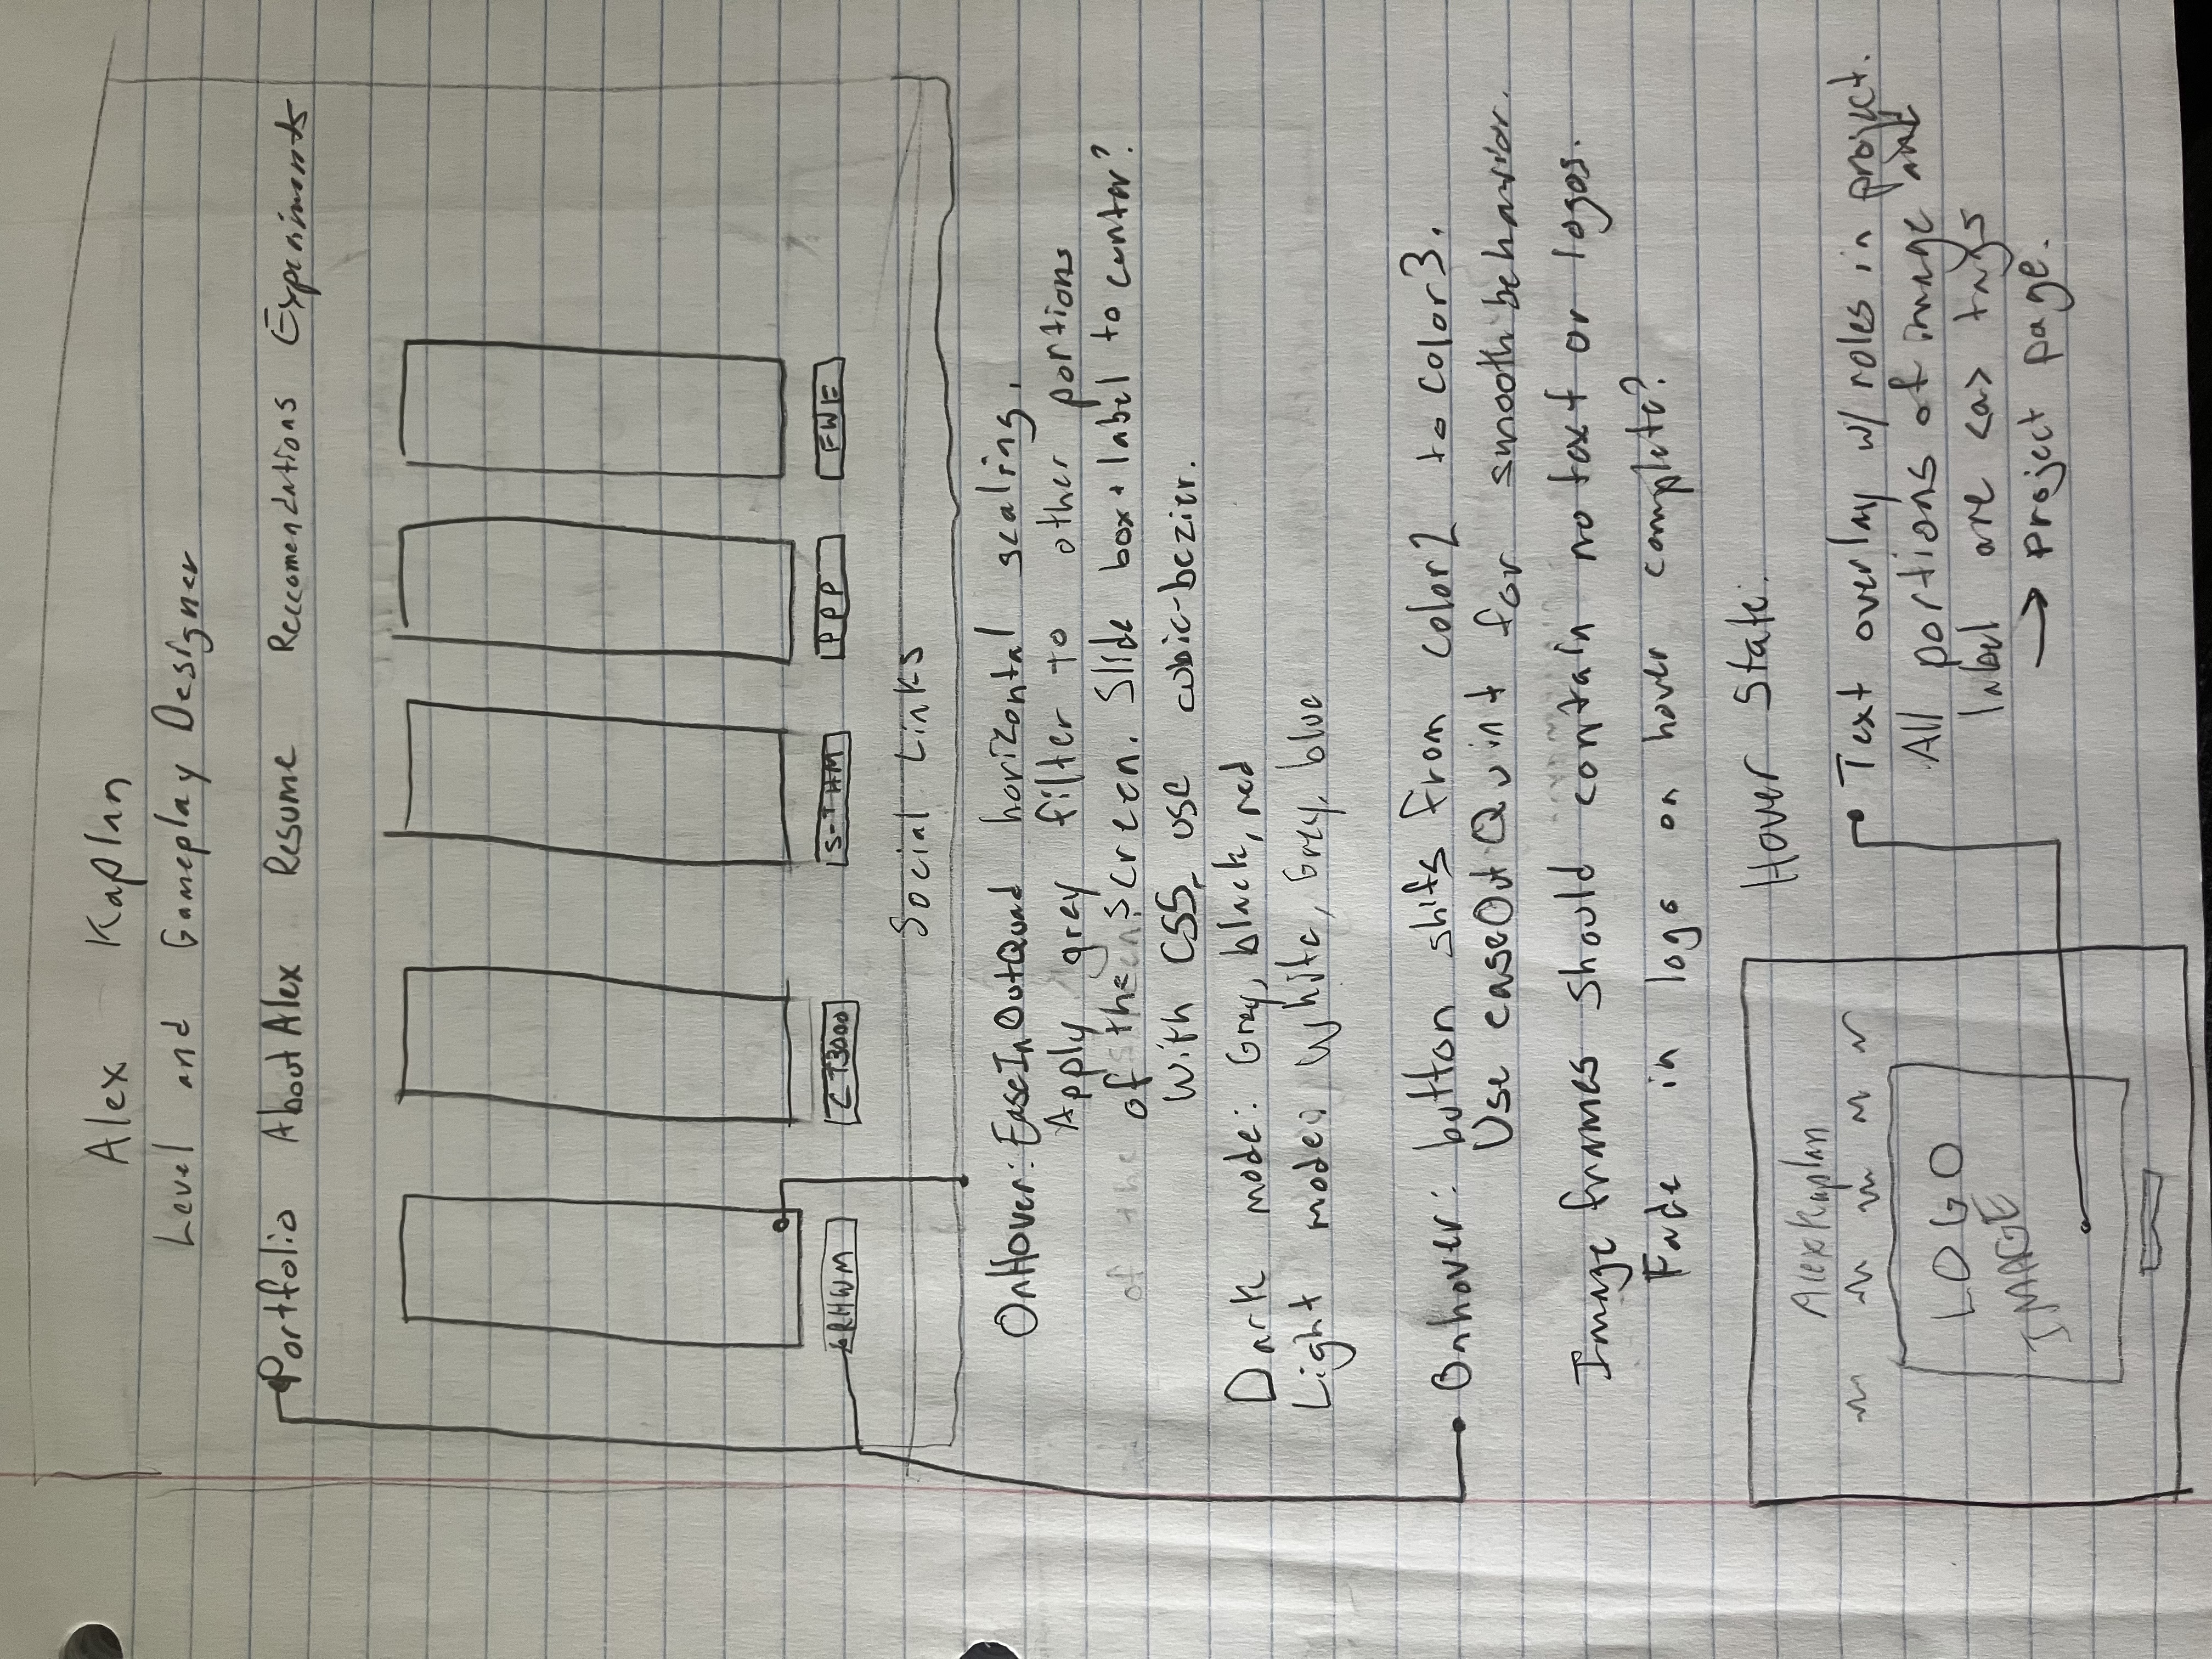 Alex Kaplan
Level and Gameplay Designer
Portfolio About Alex Resume Reccomendations Experiments
ARHWM CT3000 S-THM PPP FWE
Social Links
OnHover: EaseInOutQuad horizontal scaling.
Apply grey filter to other portions
of the screen. Slide box + label to center?
With CSS, use cubic-bezier.
Dark mode: Gray, black, red
Light mode: White, Gray, blue
Onhover: button shifts from color2 to color3.
Use easeOutQuint for smooth behavior.
Image frames should contain no text or logos.
Fade in logo on hover complete?
Hover State:
Alex Kaplan
LOGO
IMAGE
Text overlay w/ roles in project.
All portions of image and
label are <a> tags
→ project page.